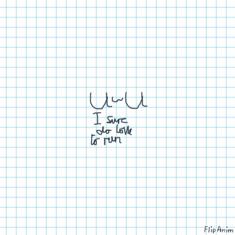 UwU
I sure
do love
to run
FlipAnim